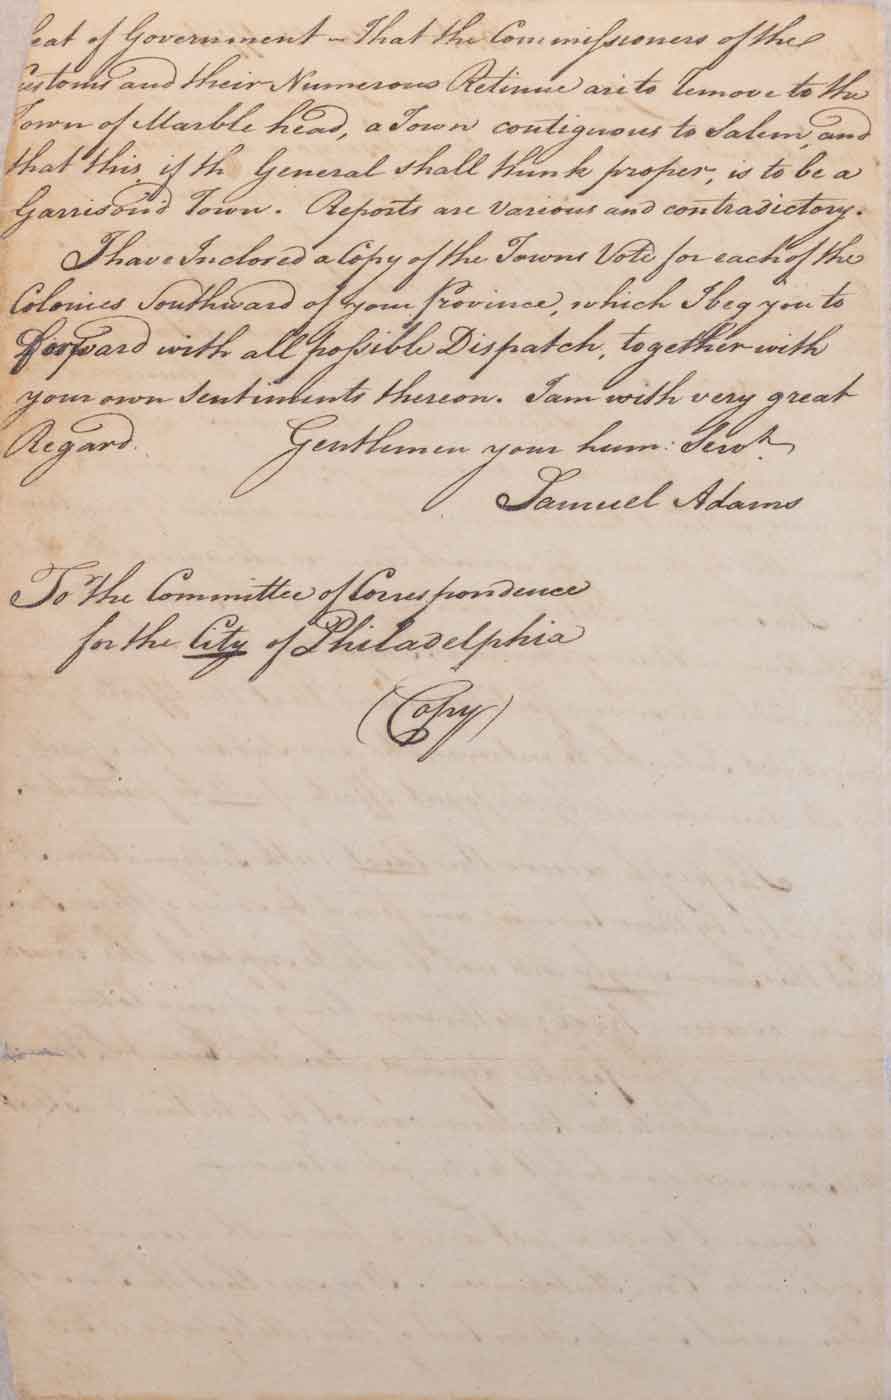 eat of Government – That the Commissioners of the
ustoms and their Numerous Retinue are to remove to the
Town of Marble head, a Town contiguous to Salem, and
that this, if th General shall think proper, is to be a
Garrison'd Town. Reports are various and contradictory.
I have Inclosed a Copy of the Towns Vote for each of the
Colonies Southward of your Province, which I beg you to
forward with all possible Dispatch, together with
your own sentiments thereon. I am with very great
Regard. Gentlemen your hum: Servt.
Samuel Adams
To the Committee of Correspondence
for the City of Philadelphia
(Copy)